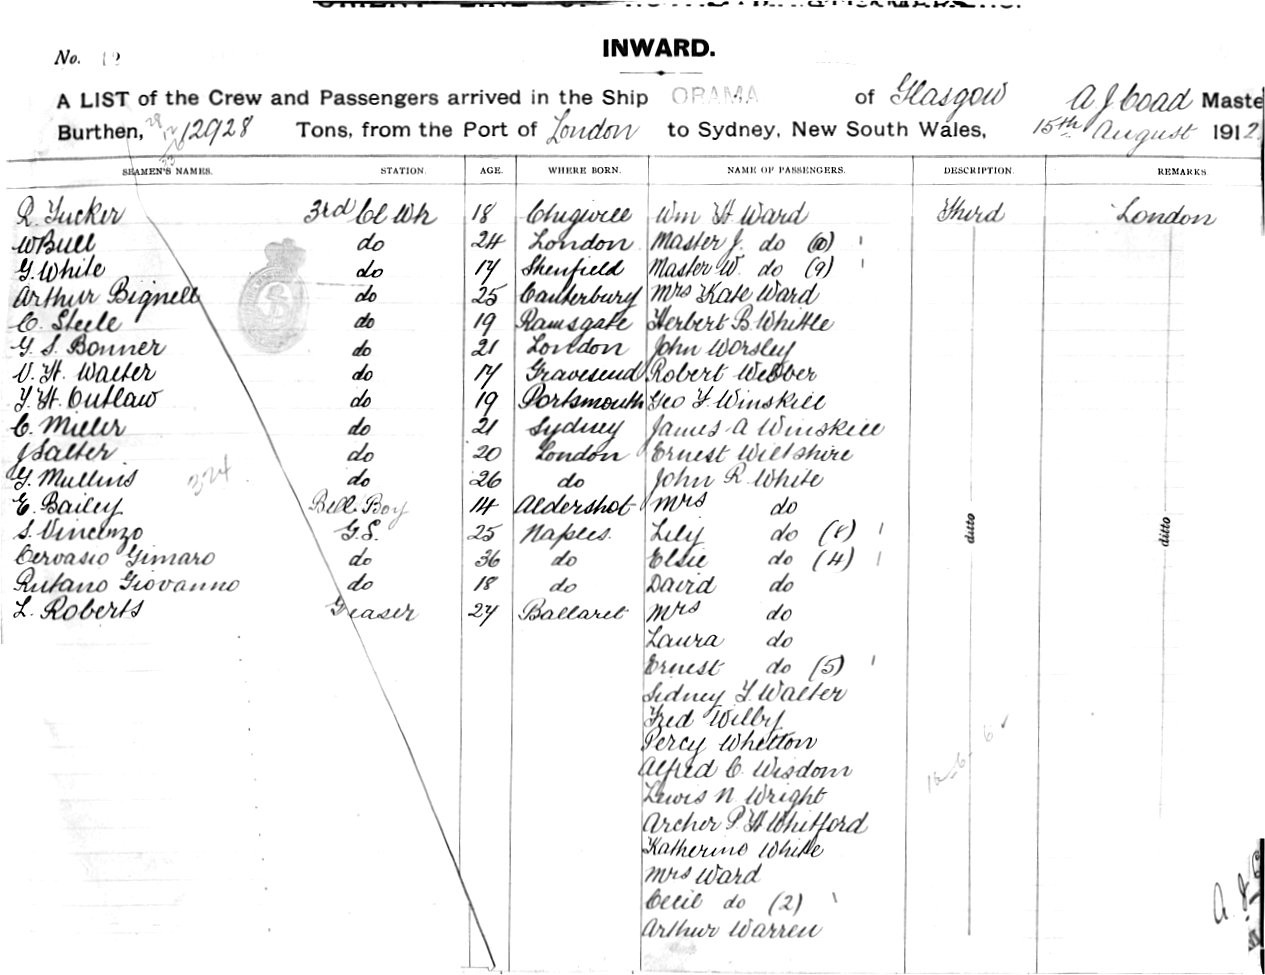 No. 12
INWARD.
A LIST of the Crew and Passengers arrived in the Ship ORAMA of Glasgow A J Coad Maste
Burthen, 12928 Tons, from the Port of London to Sydney, New South Wales, 15th August 1912
SEAMEN'S NAMES. STATION. AGE. WHERE BORN. NAME OF PASSENGERS. DESCRIPTION. REMARKS
R. Tucker 3rd Cl Wh 18 Chigwell Wm H Ward Third London
W Bull do 24 London Master J. do
G. White do 17 Shenfield Master W. do (9)
Arthur Bignell do 25 Canterbury Mrs Kate Ward
C. Steele do 19 Ramsgate Herbert B. Whittle
G. S. Bonner do 21 London John Worsley
V. H. Walter do 17 Gravesend Robert Webber
F. H. Outlaw do 19 Portsmouth Geo F. Winskill
C. Miller do 21 Sydney James A Winskill
J Salter do 20 London Ernest Wiltshire
G. Mullins do 26 do John R. White
324
E. Bailey Bell Boy 14 Aldershot Mrs do
S. Vincenzo G.S. 25 Naples. Lily do (8)
Cervasio Gimaro do 36 do Elsie do (4)
ditto ditto
Rutano Giovanno do 18 do David do
L. Roberts Greaser 27 Ballaret Mrs do
Laura do
Ernest do (5)
Sidney F. Walter
Fred Wilby
Percy Whetton
Alfred C. Wisdom
Lewis N. Wright
Archer P. H Whitford
Katherine White
Mrs Ward
Cecil do (2)
Arthur Warren